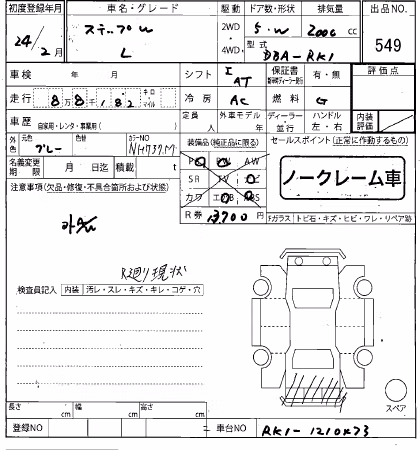 初度登録年月 車名・グレード 駆動 ドア数・形状 排気量 出品NO.
24/2月 ステップW 2WD・4WD・ 5・W 2000cc 549
L 型式 DBA-RK1
車検 年 月 シフト I AT 保証書 有・無 評価点
走行 88182 キロ マイル 冷房 AC 燃料 G
車歴 自家用・レンタ・事業用( ) 定員 人 外車モデル 年 ディーラー 並行 ハンドル 左・右 内装評価
外色 グレー 色替 カラーNO 装備品(純正品に限る) セールスポイント(正常に作動するもの)
名義変更期限 月 日迄 積載 t PS PW AW
SR TV ナビ ノークレーム車
注意事項(欠品・修復・不具合箇所および状態) カワ エアB ABS
R券 13700 Fガラス トビ石・キズ・ヒビ・ワレ・リペア跡
R廻り現状
検査員記入 内装 汚レ・スレ・キズ・キレ・コゲ・穴
スペア
長さ cm 幅 cm 高さ cm
登録NO 車台NO RK1-1210473